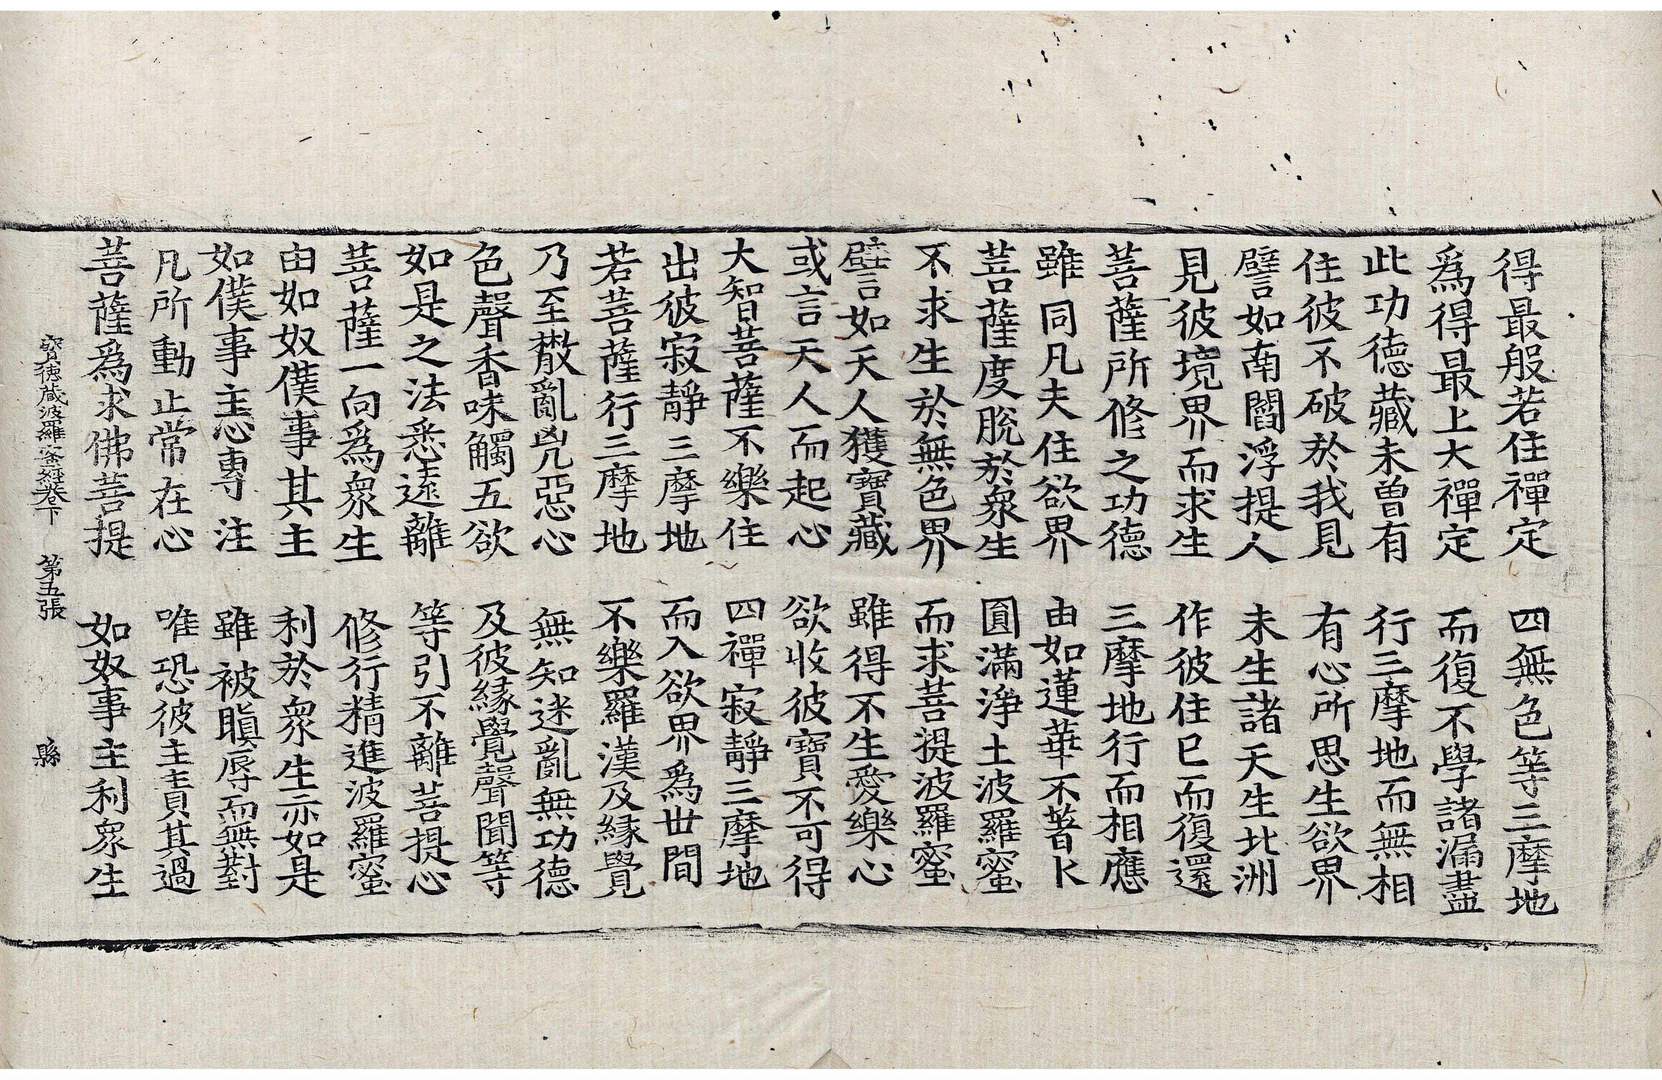 得最般若住禪定　四無色等三摩地
爲得最上大禪定　而復不學諸漏盡
此功德藏未曾有　行三摩地而無相
住彼不破於我見　有心所思生欲界
譬如南閻浮提人　未生諸天生北洲
見彼境界而求生　作彼住已而復還
菩薩所修之功德　三摩地行而相應
雖同凡夫住欲界　由如蓮華不著
菩薩度脫於衆生　圓滿淨土波羅蜜
不求生於無色界　而求菩提波羅蜜
譬如天人獲寶藏　雖得不生愛樂心
或言天人而起心　欲收彼寶不可得
大智菩薩不樂住　四禪寂靜三摩地
出彼寂靜三摩地　而入欲界爲世間
若菩薩行三摩地　不樂羅漢及緣覺
乃至散亂兇惡心　無知迷亂無功德
色聲香味觸五欲　及彼緣覺聲聞等
如是之法悉遠離　等引不離菩提心
菩薩一向爲衆生　修行精進波羅蜜
由如奴僕事其主　利於衆生亦如是
如僕事主心專注　雖被瞋辱而無對
凡所動止常在心　唯恐彼主責其過
菩薩爲求佛菩提　如奴事主利衆生
寶德藏波羅蜜經卷下　第五張　縣